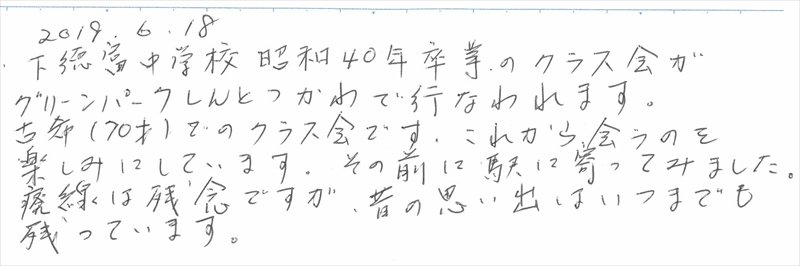 2019.6.18
下徳富中学校 昭和40年卒業のクラス会が
グリーンパークしんとつかわで行なわれます。
古希(70才)でのクラス会です。これから会うのを
楽しみにしています。その前に駅に寄ってみました。
廃線は残念ですが、昔の思い出はいつまでも
残っています。